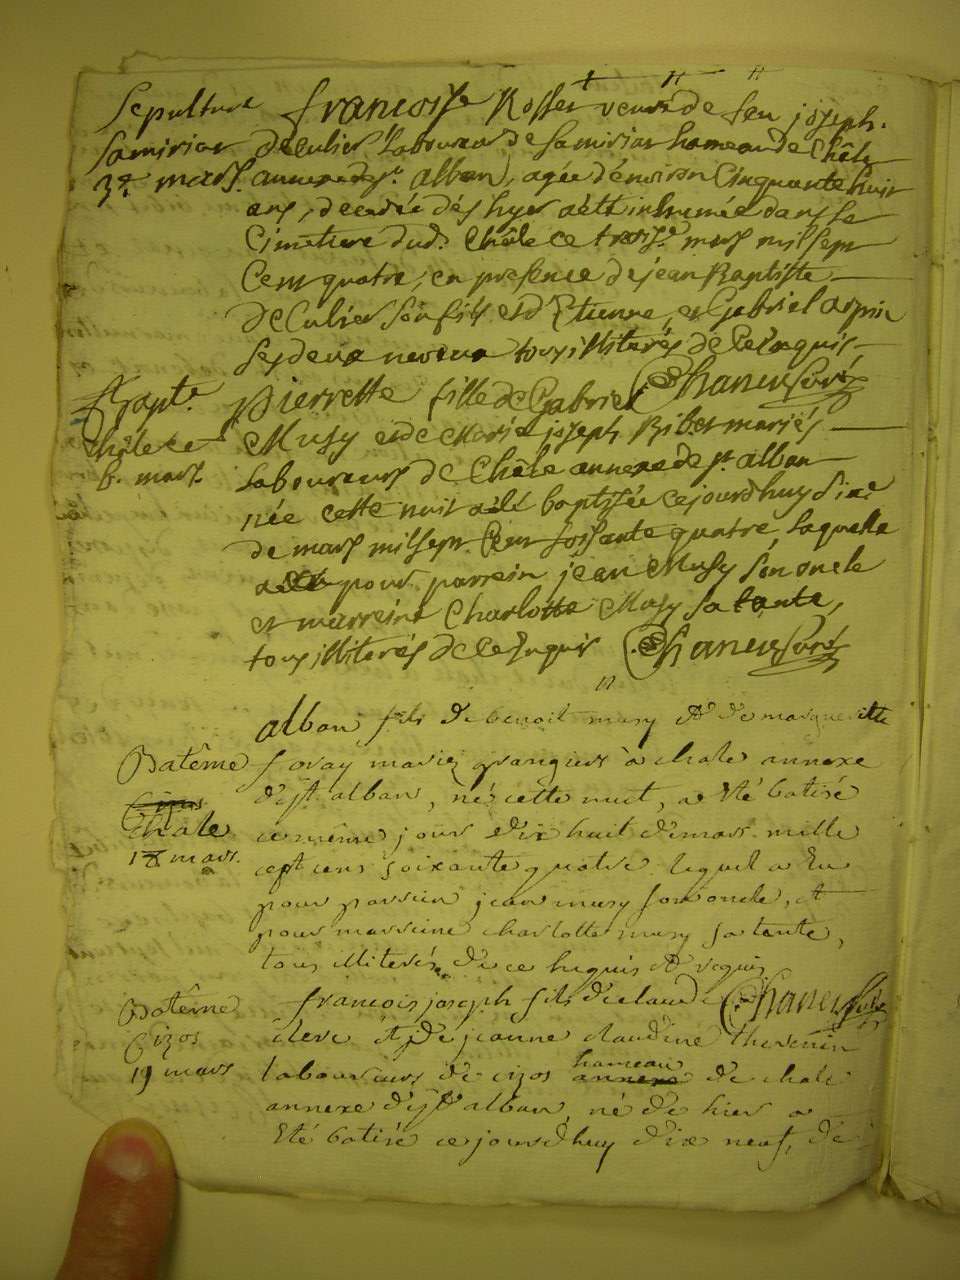 Sepulture
Samiriat
3e. mars.
francoise Rosset veuve de feu joseph
deculier Laboureur de Samiriat hameau de Châle
annexe de st. alban, agée d'environ Cinquante huit
ans, decedée dés hyer a été inhumée dans le
Cimetiere dud. Châle ce trois.e mars mil sept
Cent quatre, en presence de jean Baptiste
deCulier son fils et d'Etienne, et Gabriel
ses deux neveux tous illiterés de Ce enquis
Bapte.
Châle ce
6. mars.
pierrette fille de Gabriel
Musy et de Marie joseph Ribet mariés
Laboureurs de Châle annexe de st. alban
née cette nuit a été baptisée cejourdhuy sixe
de mars mil sept Cent soissante quatre, laquelle
a eü pour parrein jean Musy son oncle
et marreine Charlotte Musy sa tante,
tous illiterés de Ce enquis
Batême
Châle
18 mars.
alban fils de benoit musy et de margueritte
foray mariez grangers à chale annexe
d'st. alban, né cette nuit, a eté batisé
ce même jour dix huit de mars mille
sept cens soixante quatre lequel a eu
pour parrein jean musy son oncle, et
pour marreine charlotte musy sa tante,
tous illiterés de ce enquis et requis
Batême
Cizos
19 mars
francois joseph fils de claude
clerc et de jeanne claudine thevenin
laboureurs de cizos hameau de chale
annexe d'st alban, né de hier a
eté batisé ce jourd'huy dix neuf, de